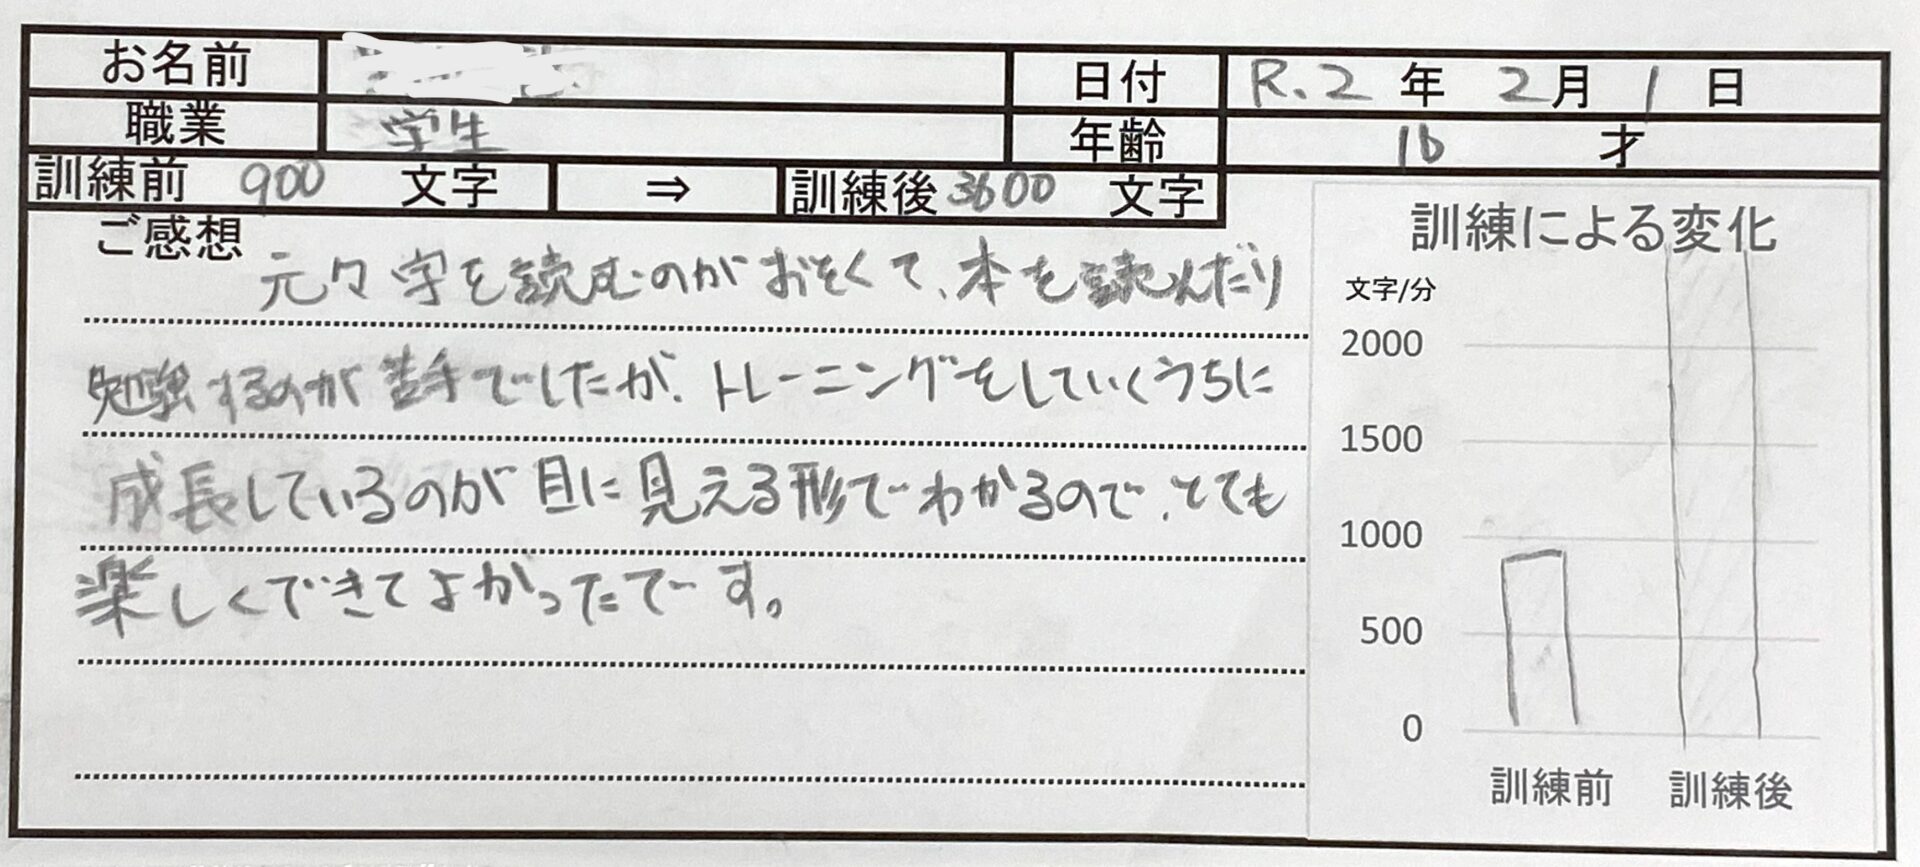 お名前
日付 R.2 年 2月 1 日
職業 学生
年齢 16 才
訓練前 900 文字 ⇒ 訓練後 3600 文字
ご感想
元々字を読むのがおそくて、本を読んだり
勉強するのが苦手でしたが、トレーニングをしていくうちに
成長しているのが目に見える形でわかるので、とても
楽しくできてよかったです。
訓練による変化
文字/分
2000
1500
1000
500
0
訓練前 訓練後